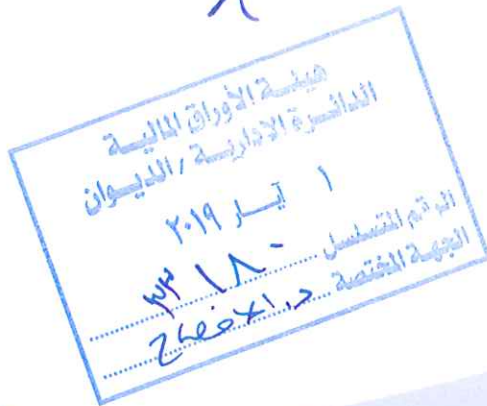 هيئة الأوراق المالية
الدائرة الادارية / الديوان
١ أيار ٢٠١٩
الرقم المتسلسل ٣٣١٨٠
الجهة المختصة د.الافصاح